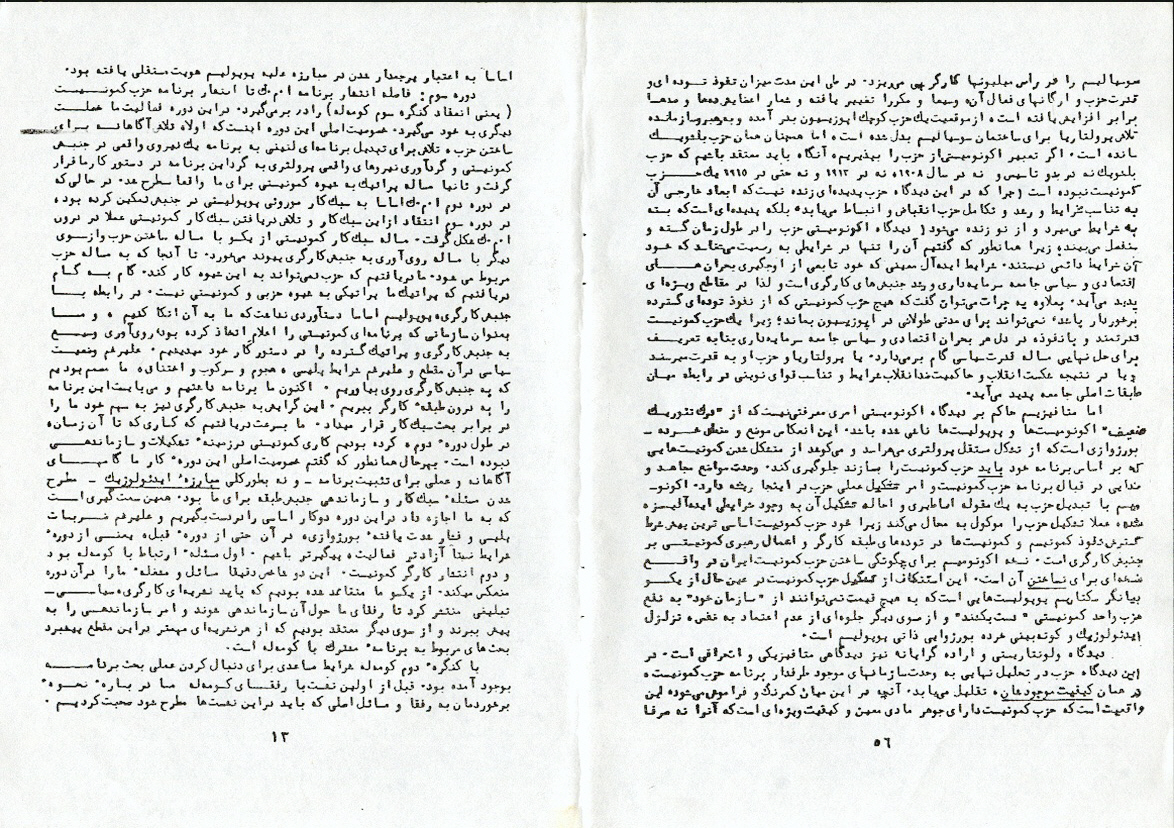 سوسیالیسم را در رأس میلیونها کارگر پی میریزد. در طی این مدت میزان نفوذ توده‌ای و
قدرت حزب و ارگانهای فعال آن، وسیعا و مکررا تغییر یافته و شمار اعضایش ده‌ها و صدها
برابر افزایش یافته است، از موقعیت یک حزب کوچک اپوزیسیون بدر آمده و به رهبر سازمانده
تلاش پرولتاریا برای ساختمان سوسیالیسم بدل شده است، اما همچنان همان حزب بلشویک
مانده است. اگر تعبیر اکونومیستی از حزب را بپذیریم، آنگاه باید معتقد باشیم که حزب
بلشویک نه در بدو تاسیس و نه در سال ۱۹۰۸، نه در ۱۹۱۲ و نه حتی در ۱۹۱۵ یک حزب
کمونیست نبوده است (چرا که در این دیدگاه حزب پدیده‌ای زنده نیست که ابعاد خارجی آن
به تناسب شرایط و رشد و تکامل حزب انقباض و انبساط می‌یابد، بلکه پدیده‌ای است که بسته
به شرایط میمیرد و از نو زنده میشود) دیدگاه اکونومیستی حزب را در طول زمان گسته و
منفصل می‌بیند، زیرا همانطور که گفتیم آن را تنها در شرایطی به رسمیت می‌شناسد که خود
آن شرایط دائمی نیستند. شرایط ایده‌آل معینی که خود تابعی از اوجگیری بحران‌های
اقتصادی و سیاسی جامعه سرمایه‌داری و رشد جنبش‌های کارگری است و لذا در مقاطع ویژه‌ای
پدید می‌آید. بعلاوه به جرات می‌توان گفت که هیچ حزب کمونیستی که از نفوذ توده‌ای گسترده
برخوردار باشد، نمی‌تواند برای مدتی طولانی در اپوزیسیون بماند؛ زیرا یک حزب کمونیست
قدرتمند و با نفوذ، در دل هر بحران اقتصادی و سیاسی جامعه سرمایه‌داری بنا به تعریف
برای حل نهایی مساله قدرت سیاسی گام برمی‌دارد. یا پرولتاریا و حزب او به قدرت میرسند
و یا در نتیجه شکست انقلاب و حاکمیت ضدانقلاب شرایط و تناسب قوای نوینی در رابطه میان
طبقات اصلی جامعه پدید می‌آید.
اما متافیزیسم حاکم بر دیدگاه اکونومیستی امری معرفتی نیست که از "درک تئوریک
ضعیف" اکونومیست‌ها و پوپولیست‌ها ناشی شده باشد. این انعکاس موضع و منطق خرده -
بورژوازی است که از تشکل مستقل پرولتری می‌هراسد و می‌کوشد از متشکل شدن کمونیست‌هایی
که بر اساس برنامه خود باید حزب کمونیست را بسازند جلوگیری کند. وحدت مواضع مجاهد و
فدایی در قبال برنامه حزب کمونیست و امر تشکیل عملی حزب در اینجا ریشه دارد. اکونو-
میسم با تبدیل حزب به یک مقوله اساطیری و احاله تشکیل آن به وجود شرایطی ایده‌آلیزه
شده، عملا تشکیل حزب را موکول به محال می‌کند زیرا خود حزب کمونیست اساسی ترین پیش شرط
گسترش نفوذ کمونیسم و کمونیست‌ها در توده‌های طبقه کارگر و اعمال رهبری کمونیستی بر
جنبش کارگری است. نسخه اکونومیسم برای چگونگی ساختن حزب کمونیست ایران در واقع
نسخه‌ای برای نساختن آن است. این استنکاف از تشکیل حزب کمونیست در عین حال از یکسو
بیانگر سکتاریسم پوپولیست‌هایی است که به هیچ قیمت نمی‌توانند از "سازمان خود" به نفع
حزب واحد کمونیستی "دست بکشند" و از سوی دیگر جلوه‌ای از عدم اعتماد به نفس، تزلزل
ایدئولوژیک و کوته‌بینی خرده بورژوایی ذاتی پوپولیسم است.
دیدگاه ولونتاریستی و اراده گرایانه نیز دیدگاهی متافیزیکی و انحرافی است. در
این دیدگاه حزب در تحلیل نهایی به وحدت سازمانهای موجود طرفدار برنامه حزب کمونیست،
در همان کیفیت موجودشان، تقلیل می‌یابد. آنچه در این میان کمرنگ و فراموش می‌شود این
واقعیت است که حزب کمونیست دارای جوهر مادی معین و کیفیت ویژه‌ای است که آنرا نه صرفا
۵۶
اساسا به اعتبار پرچمدار شدن در مبارزه علیه پوپولیسم هویت مستقلی یافته بود.
دوره سوم: فاصله انتشار برنامه ا.م.ک تا انتشار برنامه حزب کمونیست
(یعنی انعقاد کنگره سوم کومه‌له) را در برمی‌گیرد. در این دوره فعالیت ما خصلت
دیگری به خود می‌گیرد. خصوصیت اصلی این دوره اینست که اولا، تلاش آگاهانه برای
ساختن حزب، تلاش برای تبدیل برنامه‌ای لنینی به برنامه یک نیروی واقعی در جنبش
کمونیستی و گردآوری نیروهای واقعی پرولتری به گرد این برنامه در دستور کار ما قرار
گرفت و ثانیا مساله پراتیک به شیوه کمونیستی برای ما واقعا مطرح شد. در حالی که
در دوره دوم ا.م.ک اساسا به سبک کار موروثی پوپولیستی در جنبش تمکین کرده بود،
در دوره سوم انتقاد از این سبک کار و تلاش در یافتن سبک کار کمونیستی عملا در درون
ا.م.ک شکل گرفت. مساله سبک کار کمونیستی از یکسو با مساله ساختن حزب و از سوی
دیگر با مساله روی‌آوری به جنبش کارگری پیوند می‌خورد. تا آنجا که به مساله حزب
مربوط می‌شود، ما دریافتیم که حزب نمی‌تواند به این شیوه کار کند. گام به گام
دریافتیم که پراتیک ما پراتیکی به شیوه حزبی و کمونیستی نیست. در رابطه با
جنبش کارگری، پوپولیسم اساسا دستآوردی نداشت که ما به آن اتکا کنیم، و ما
بعنوان سازمانی که برنامه‌ای کمونیستی را اعلام و اتخاذ کرده بود، روی‌آوری وسیع
به جنبش کارگری و پراتیک گسترده را در دستور کار خود میدیدیم. علیرغم وضعیت
سیاسی در آن مقطع و علیرغم شرایط پلیسی، هجوم و سرکوب و اختناق، ما مصمم بودیم
که به جنبش کارگری روی بیاوریم. اکنون ما برنامه داشتیم و می‌بایست این برنامه
را به درون طبقه کارگر ببریم. این گرایش به جنبش کارگری نیز به سهم خود ما را
در برابر بحث سبک کار قرار میداد. ما بسرعت دریافتیم که کاری که تا آن زمان،
در طول دوره دوم، کرده بودیم کاری کمونیستی در زمینه تشکیلات و سازماندهی
نبوده است. بهرحال همانطور که گفتم خصوصیت اصلی این دوره کار ما گامهای
آگاهانه و عملی برای تثبیت برنامه - و نه بطور کلی مبارزه ایدئولوژیک - مطرح
شدن مسئله سبک کار و سازماندهی جنبش طبقه برای ما بود. همین سمت گیری است
که به ما اجازه داد در این دوره دو کار اساسی را بدست بگیریم و علیرغم ضربات
پلیسی و فشار شدت یافته بورژوازی، در آن حتی از دوره قبل، یعنی از دوره
شرایط نسبتا آزادتر فعالیت، پیگیرتر باشیم. اول مسئله ارتباط با کومه‌له بود
و دوم انتشار کارگر کمونیست. این دو شاخص دقیقا مسائل و مشغله ما را در آن دوره
منعکس میکند. از یکسو ما متقاعد شده بودیم که باید نشریه‌ای کارگری، سیاسی-
تبلیغی منتشر کرد تا رفقای ما حول آن سازماندهی شوند و امر سازماندهی را به
پیش ببرند و از سوی دیگر معتقد بودیم که از هر نشریه‌ای مهمتر در این مقطع پیشبرد
بحث‌های مربوط به برنامه مشترک با کومه‌له است.
با کنگره دوم کومه‌له شرایط مساعدی برای دنبال کردن عملی بحث برنامه
بوجود آمده بود. قبل از اولین نشست با رفقای کومه‌له ما در باره نحوه
برخوردمان به رفقا و مسائل اصلی که باید در این نشست‌ها مطرح شود صحبت کردیم.
۱۳